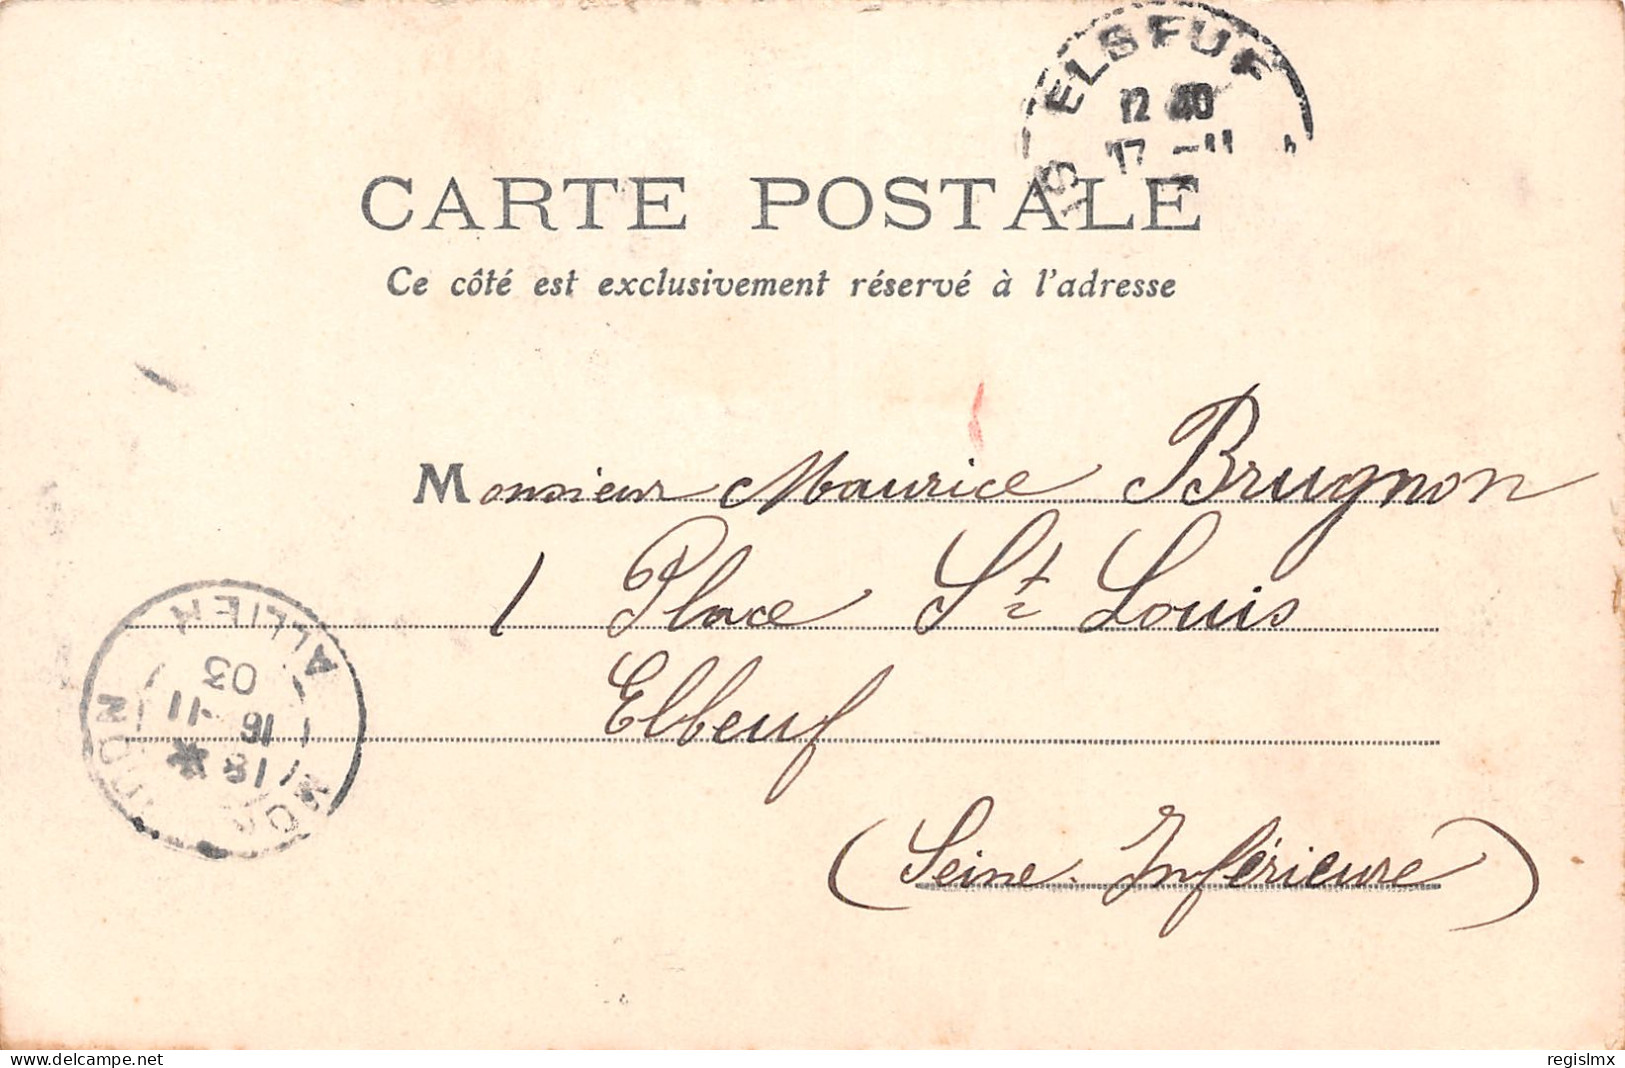 ELSFUF
12 40
17 -11
CARTE POSTALE
Ce côté est exclusivement réservé à l'adresse
Monsieur Maurice Brugnon
1 Place St Louis
Elbeuf
(Seine-Inférieure)
ALLIER
03
16 -11
18 *
delcampe.net
regislmx